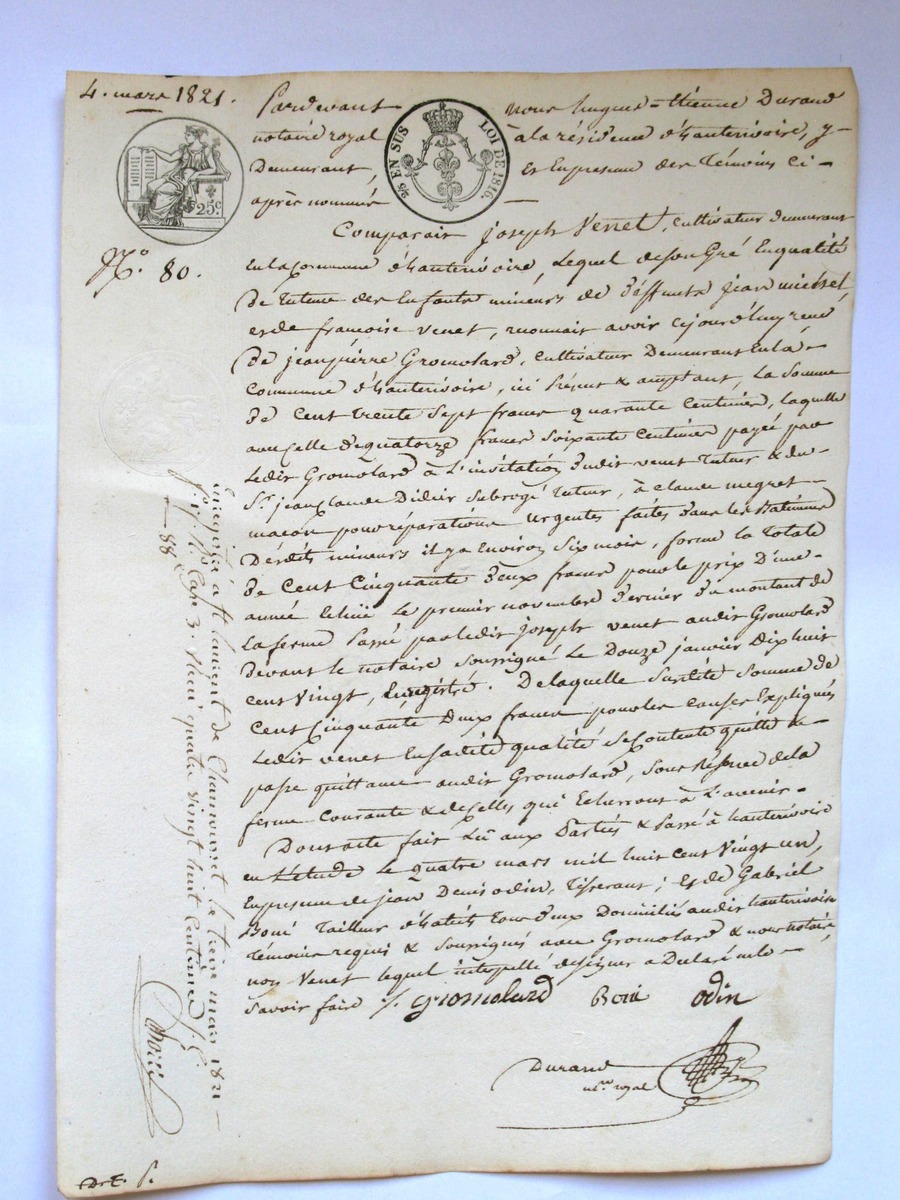 4. mars 1821.
Pardevant nous hugues-Etienne Durand
notaire royal à la résidence d'hauterivoire, y
Demeurant, et En presence des Témoins Ci-
après nommés
2/5 EN SUS LOI DE 1816.
25c
N.º 80.
Comparait joseph Venet, cultivateur demeurant
En la commune d'hauterivoire, Lequel de son Gré En qualité
De tuteur des Enfants mineurs de déffunts jean
et de francoise venet, reconnait avoir cejourd'huy reçu
De jean pierre Gromolard, cultivateur Demeurant En la
commune d'hauterivoire, ici présent & acceptant, La somme
de Cent trente sept francs quarante centimes, laquelle
avec Celle de quatorze francs soixante centimes payée par
Ledit Gromolard à L'invitation dudit venet Tuteur & du
Sr. jean claude Didier subrogé tuteur, à claude megret
macon pour réparations urgentes faites dans les Batiments
Desdits mineurs il y a Environ six mois, forme la Totale
de Cent Cinquante deux francs pour le prix D'une
année Echue Le premier novembre dernier du montant de
La ferme Passé par ledit joseph venet audit Gromolard
devant le notaire soussigné Le Douze janvier Dix huit
cent Vingt, Enregistré. De laquelle susdite somme de
Cent Cinquante Deux francs pour les causes Expliquées
Ledit venet En sadite qualité se contente quitte &
passe quittance audit Gromolard, sous Réserve de la
ferme courante & de Celles qui Echerront à L'avenir-
Dont acte fait Lu aux Parties & Passé à hauterivoire
en L'étude Le quatre mars mil huit cent Vingt un,
En presence de jean Denis odin, Tisserant; et de Gabriel
Boni Tailleur d'habits tous deux Domiciliés audit hauterivoire
Témoins requis & soussignés avec Gromolard & nous notaire,
non Venet lequel interpellé de signer a Déclaré ne le
savoir faire ./. Gromolard Boni odin
Durand
nre royal
Enregistré à St Laurent de Chamousset le treize mars 1821
Case 3. Reçu quatre vingt huit centimes
88